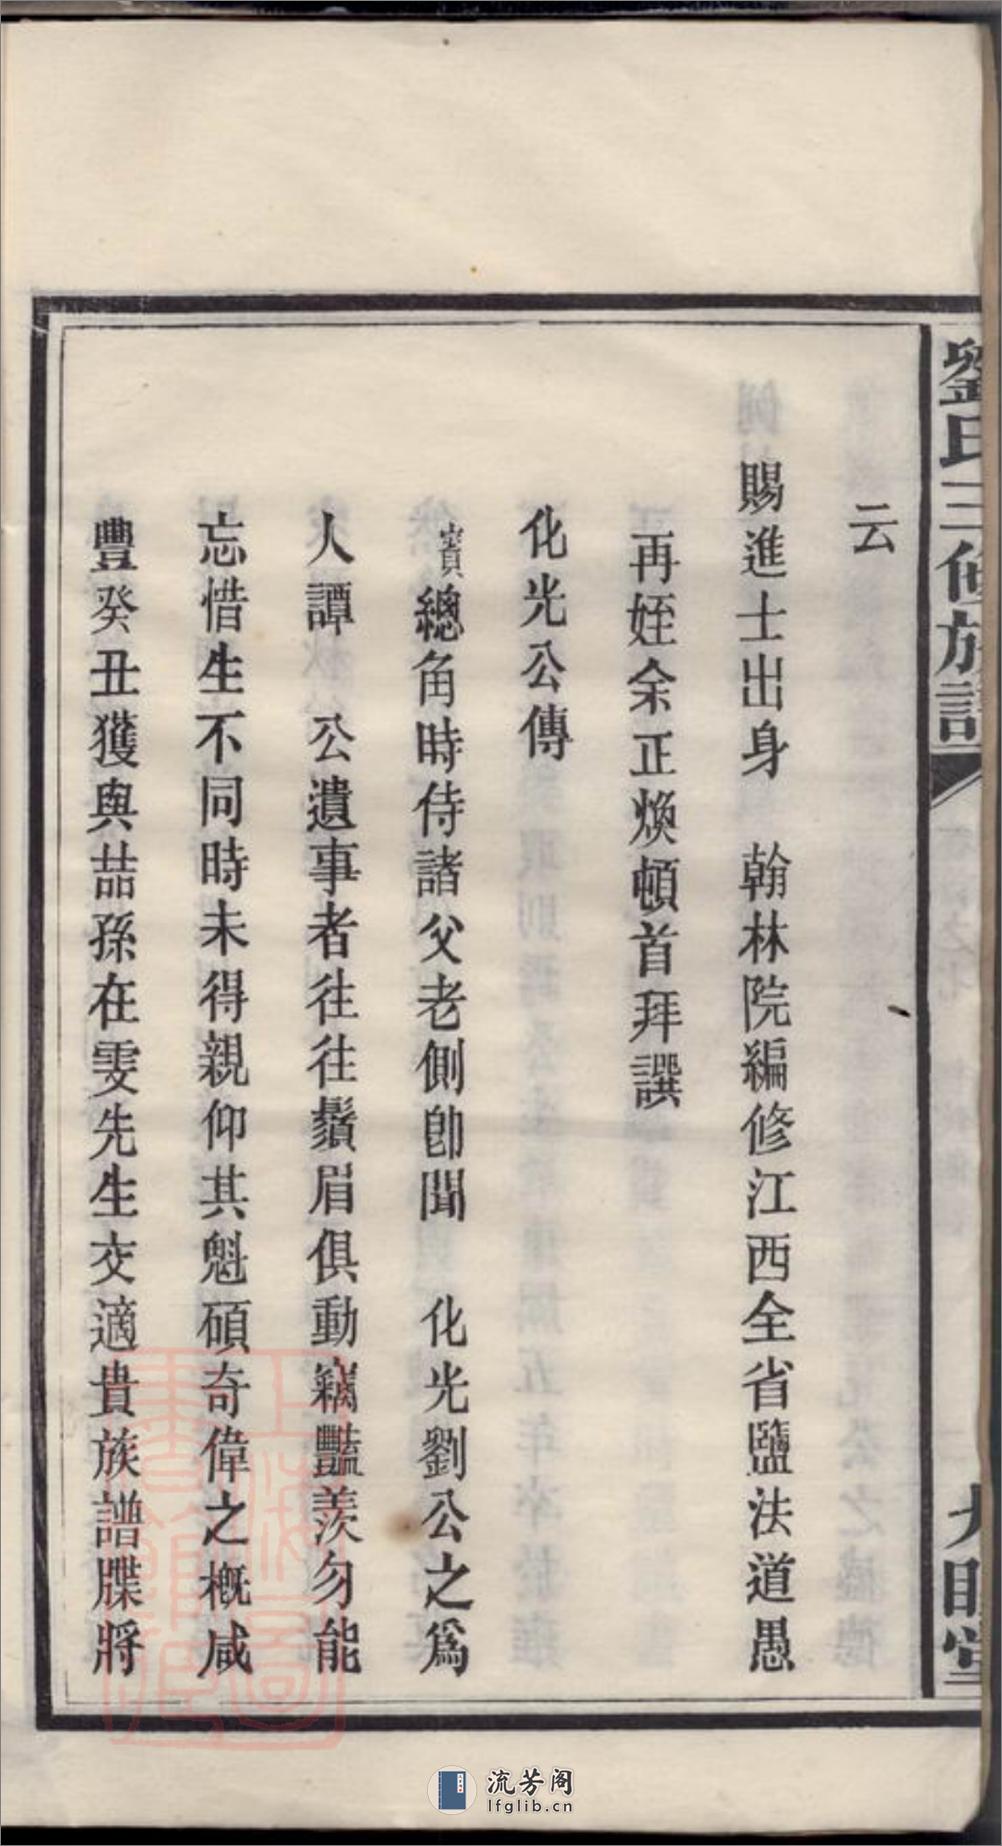 劉氏三修族譜
云
賜進士出身　翰林院編修江西全省鹽法道愚
再姪余正煥頓首拜譔
化光公傳
賓總角時侍諸父老側卽聞　化光劉公之爲
人譚　公遺事者往往鬚眉俱動竊豔羨勿能
忘惜生不同時未得親仰其魁碩奇偉之概咸
豐癸丑獲與喆孫在雯先生交適貴族譜牒將
流芳阁
lfglib.cn